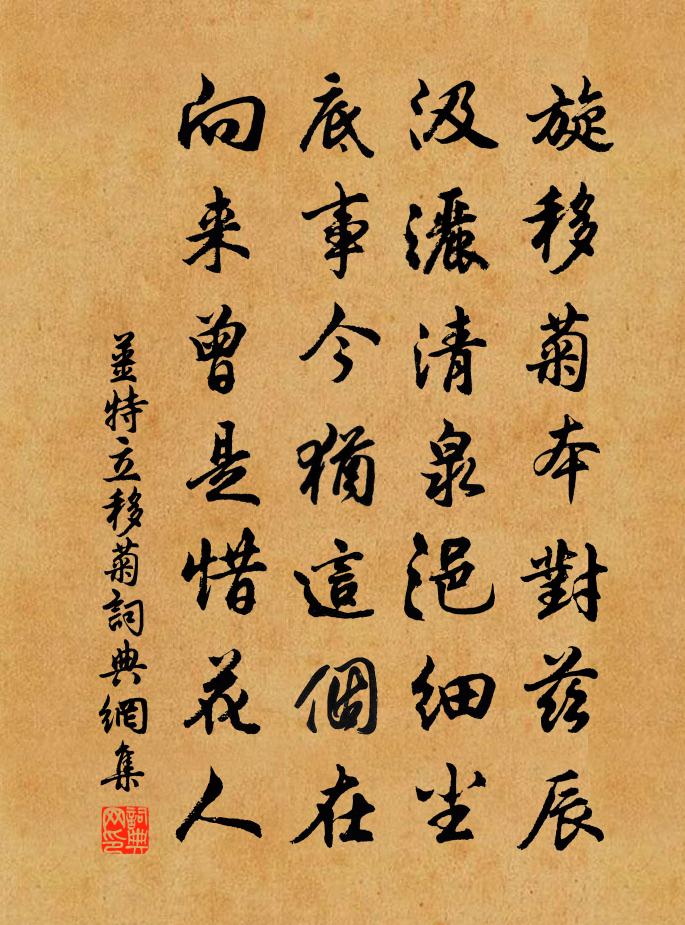 旋移菊本對茲辰
汲灑清泉浥細尘
底事今猶這個在
向来曾是惜花人
姜特立移菊詞典網集
詞典网印